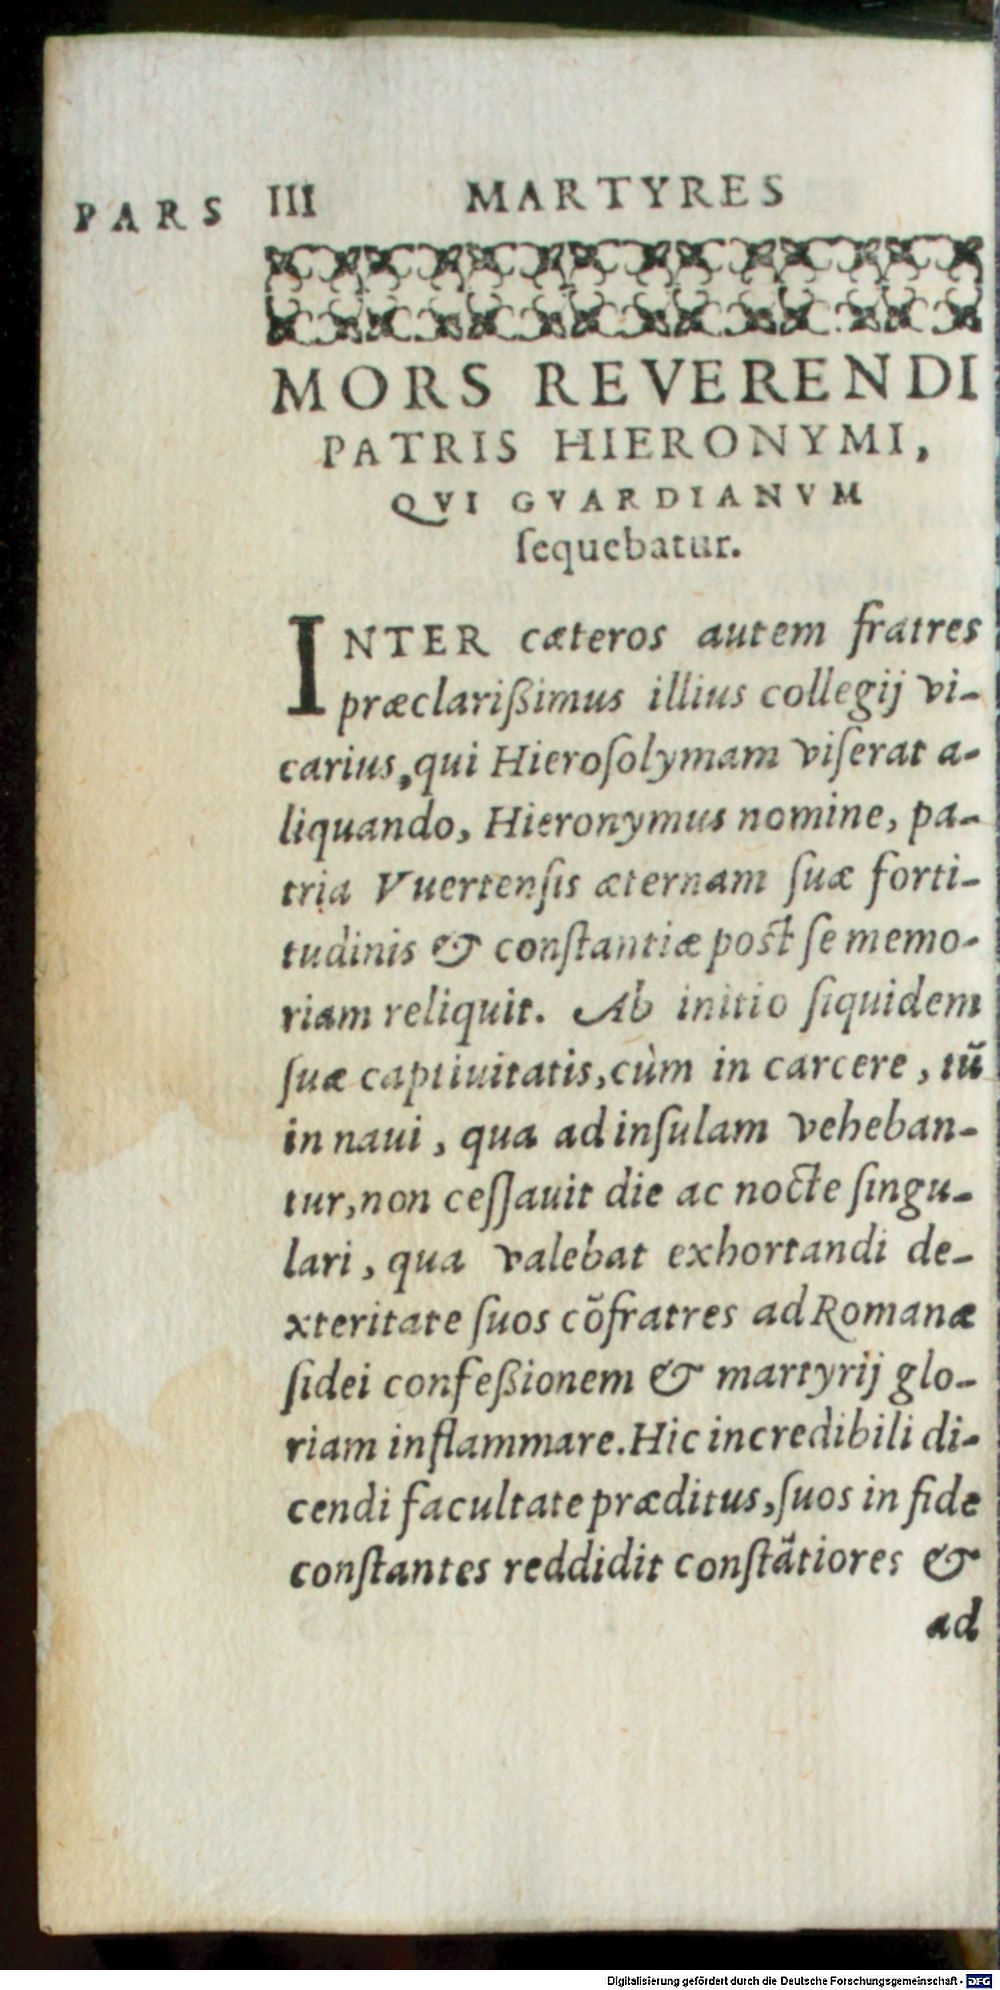 PARS III MARTYRES
MORS REVERENDI
PATRIS HIERONYMI,
QVI GVARDIANVM
ſequebatur.
INTER cæteros autem fratres
præclarißimus illius collegij vi-
carius, qui Hieroſolymam viſerat a-
liquando, Hieronymus nomine, pa-
tria Vuertenſis æternam ſuæ forti-
tudinis & conſtantiæ poſt ſe memo-
riam reliquit. Ab initio ſiquidem
ſuæ captiuitatis, cùm in carcere, tū
in naui, qua ad inſulam veheban-
tur, non ceſſauit die ac nocte ſingu-
lari, qua valebat exhortandi de-
xteritate ſuos cõfratres ad Romanæ
fidei confeßionem & martyrij glo-
riam inflammare. Hic incredibili di-
cendi facultate præditus, ſuos in fide
conſtantes reddidit conſtãtiores &
ad
Digitalisierung gefördert durch die Deutsche Forschungsgemeinschaft - DFG